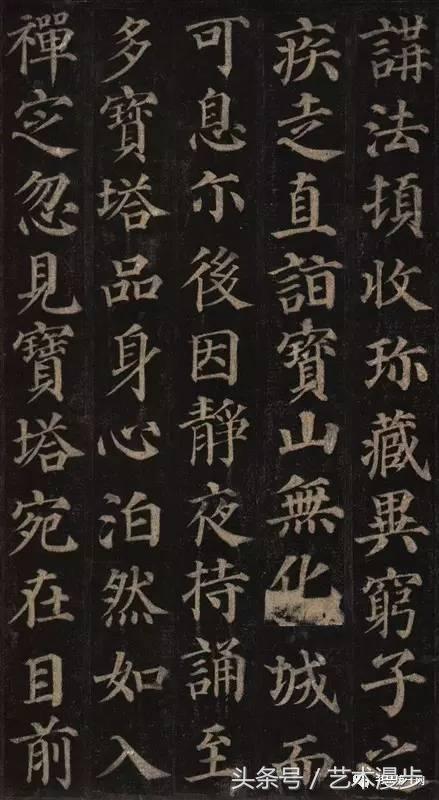 講法頓收珎藏異窮子之
疾走直詣寶山無化城而
可息尒後因靜夜持誦至
多寶塔品身心泊然如入
禪定忽見寶塔宛在目前
头条号 / 艺术漫步